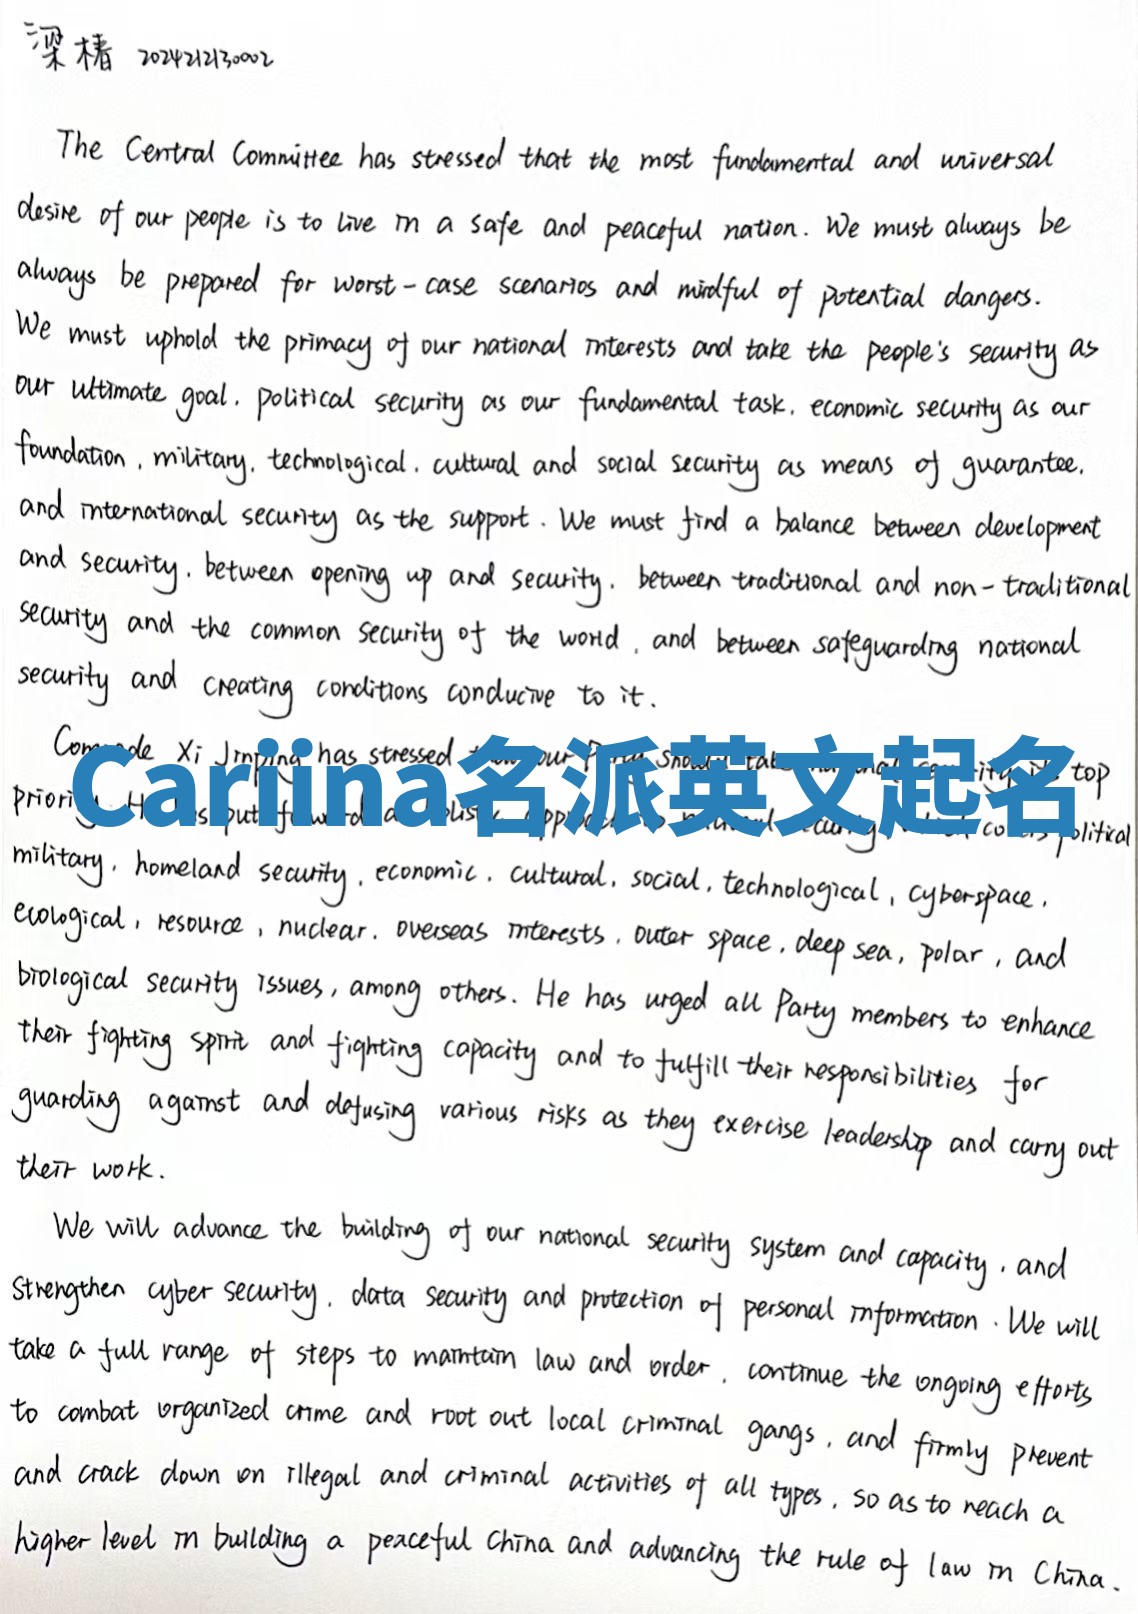 梁椿 2024212130002
The Central Committee has stressed that the most fundamental and universal
desire of our people is to live in a safe and peaceful nation. We must always be
always be prepared for worst-case scenarios and mindful of potential dangers.
We must uphold the primacy of our national interests and take the people's security as
our ultimate goal, political security as our fundamental task, economic security as our
foundation, military, technological, cultural and social security as means of guarantee,
and international security as the support. We must find a balance between development
and security, between opening up and security, between traditional and non-traditional
security and the common security of the world, and between safeguarding national
security and creating conditions conducive to it.
Xi Jinping has stressed our top
Cariina名派英文起名
put political
military, homeland security, economic, cultural, social, technological, cyberspace,
ecological, resource, nuclear, overseas interests, outer space, deep sea, polar, and
biological security issues, among others. He has urged all Party members to enhance
their fighting spirit and fighting capacity and to fulfill their responsibilities for
guarding against and defusing various risks as they exercise leadership and carry out
their work.
We will advance the building of our national security system and capacity, and
strengthen cyber security, data security and protection of personal information. We will
take a full range of steps to maintain law and order, continue the ongoing efforts
to combat organized crime and root out local criminal gangs, and firmly prevent
and crack down on illegal and criminal activities of all types, so as to reach a
higher level in building a peaceful China and advancing the rule of law in China.